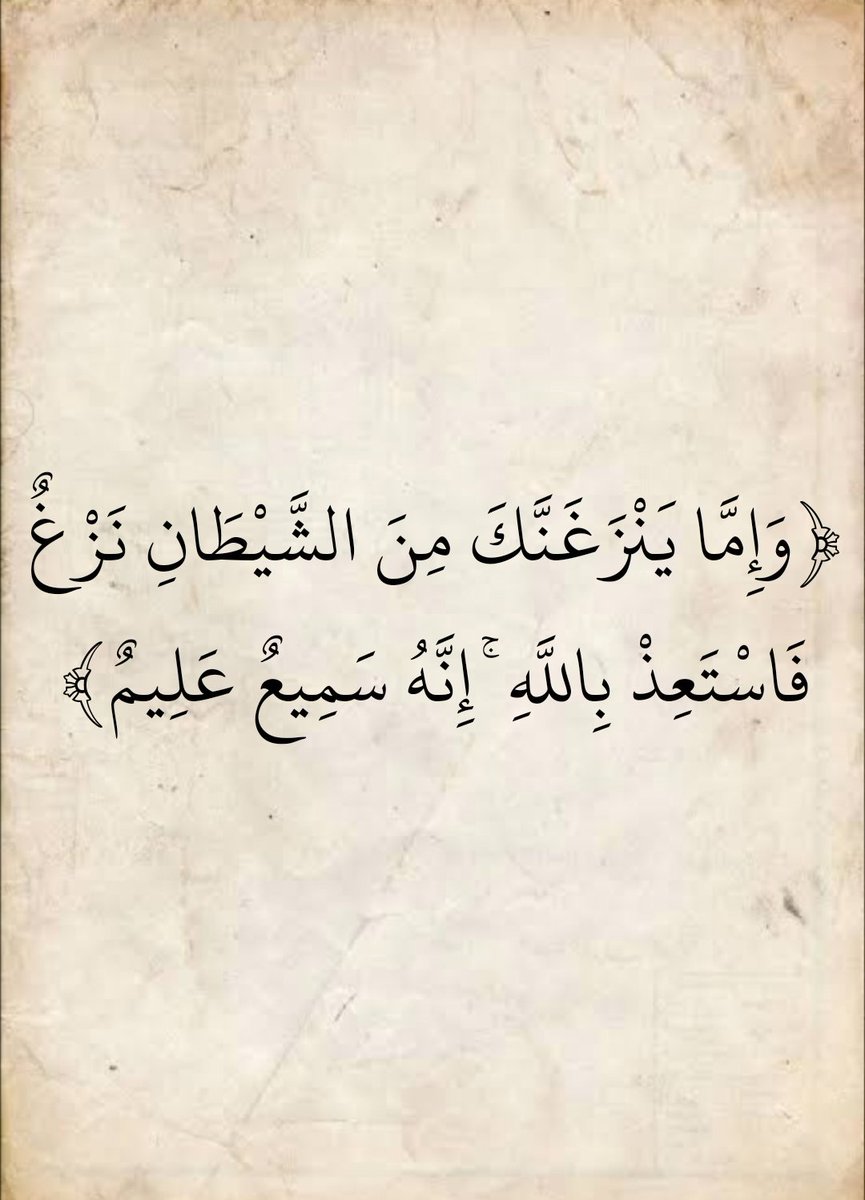 ﴿وَإِمَّا يَنْزَغَنَّكَ مِنَ الشَّيْطَانِ نَزْغٌ
فَاسْتَعِذْ بِاللَّهِ ۚ إِنَّهُ سَمِيعٌ عَلِيمٌ﴾